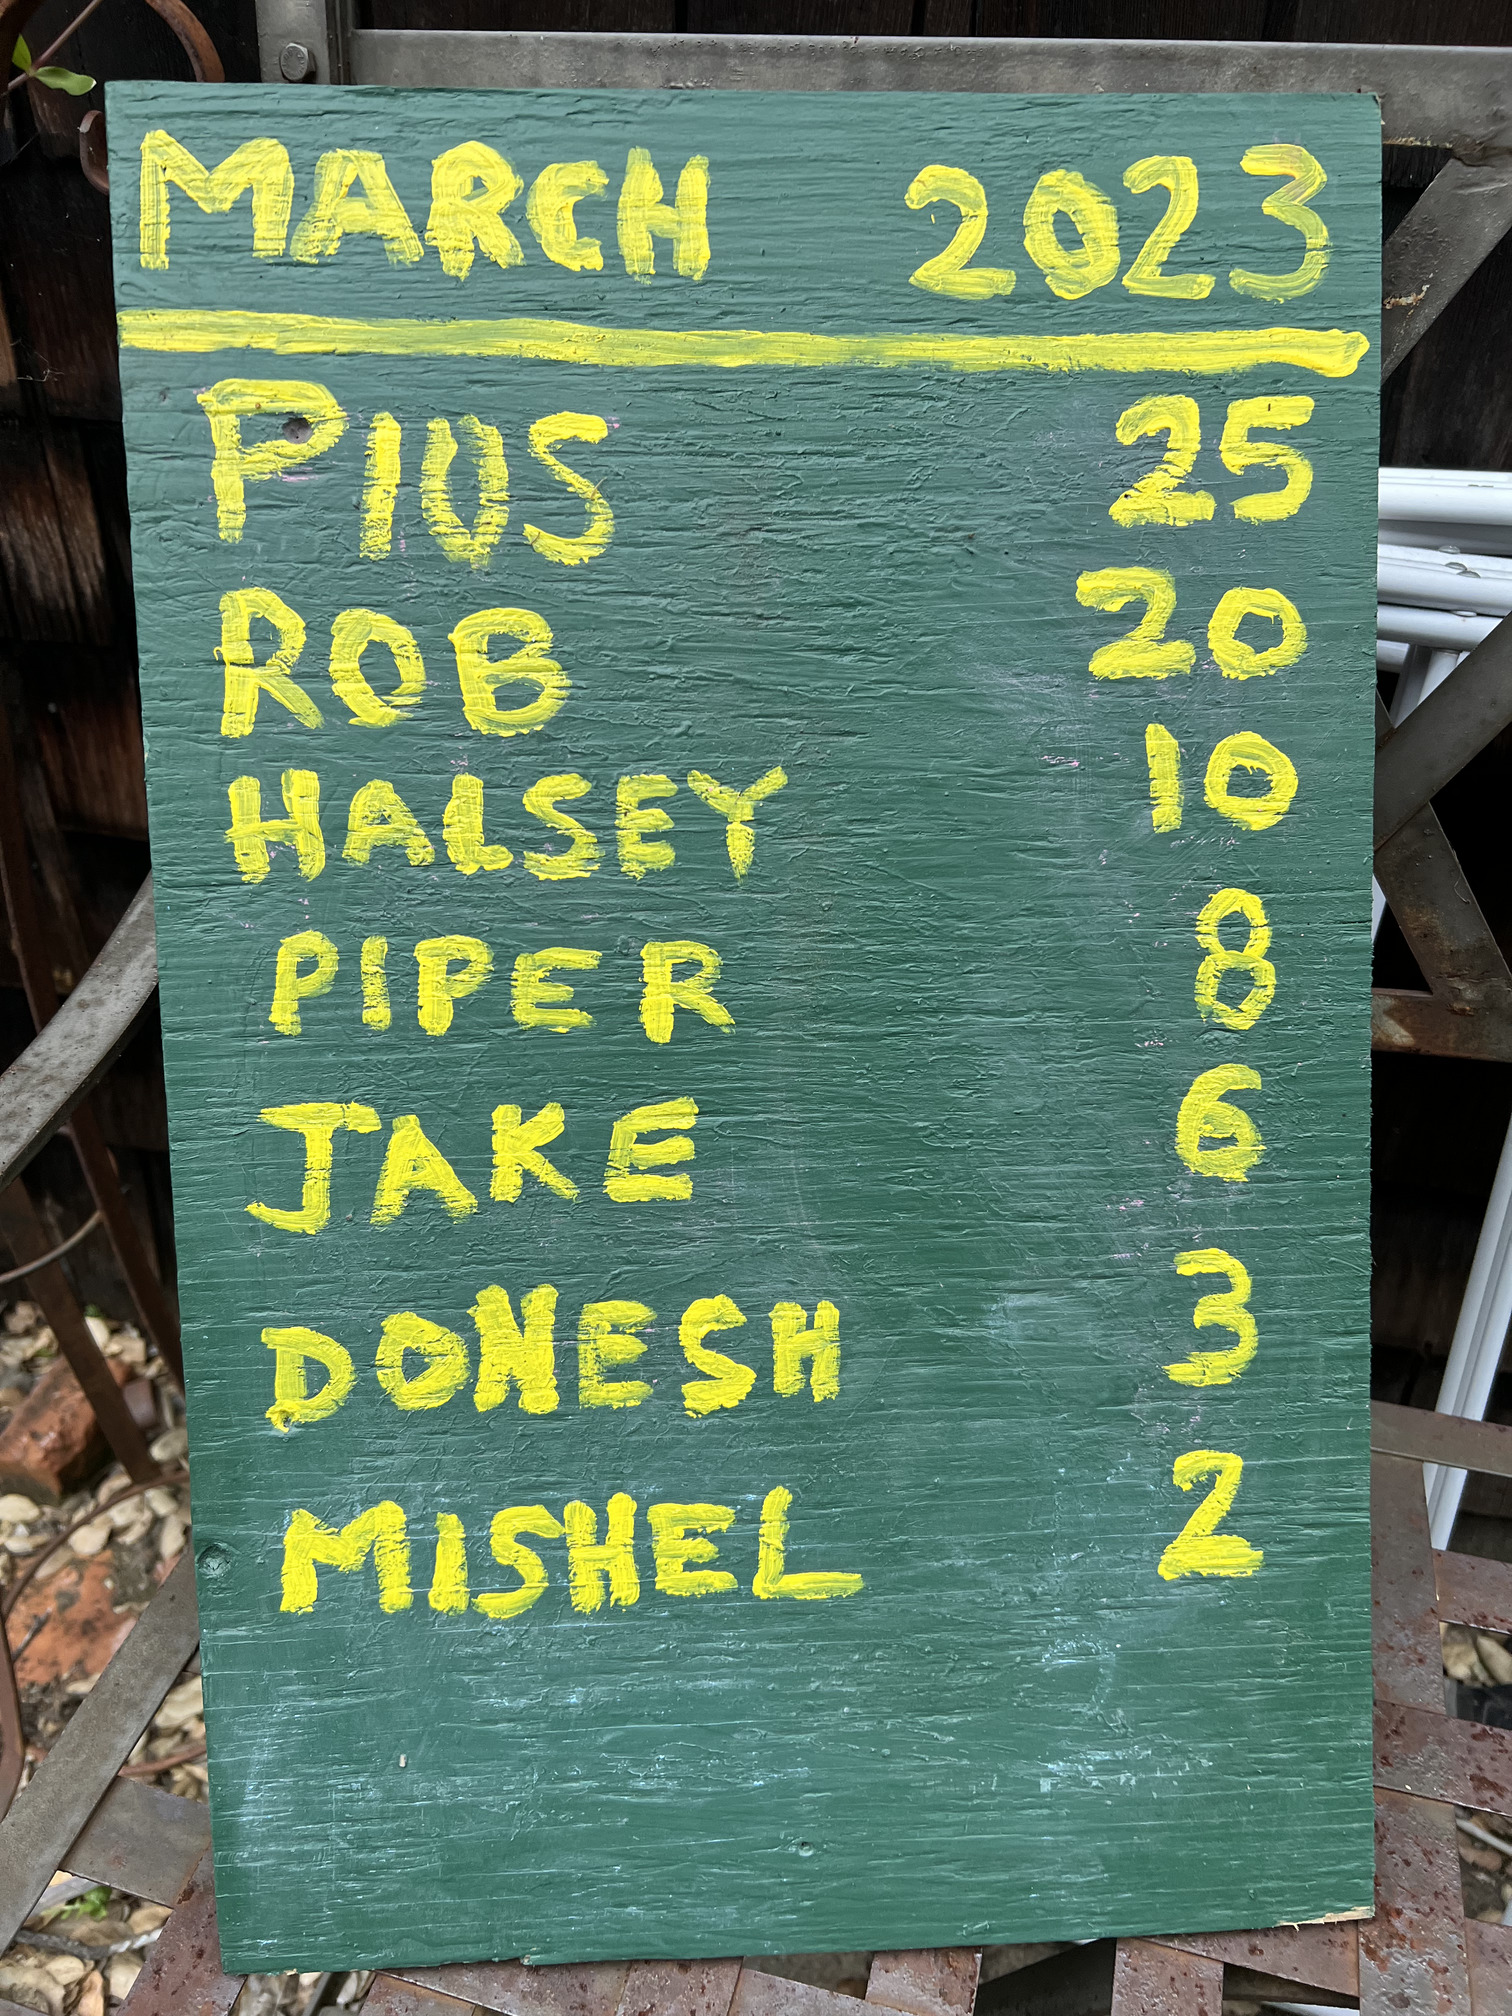 MARCH 2023
PIUS 25
ROB 20
HALSEY 10
PIPER 8
JAKE 6
DONESH 3
MISHEL 2